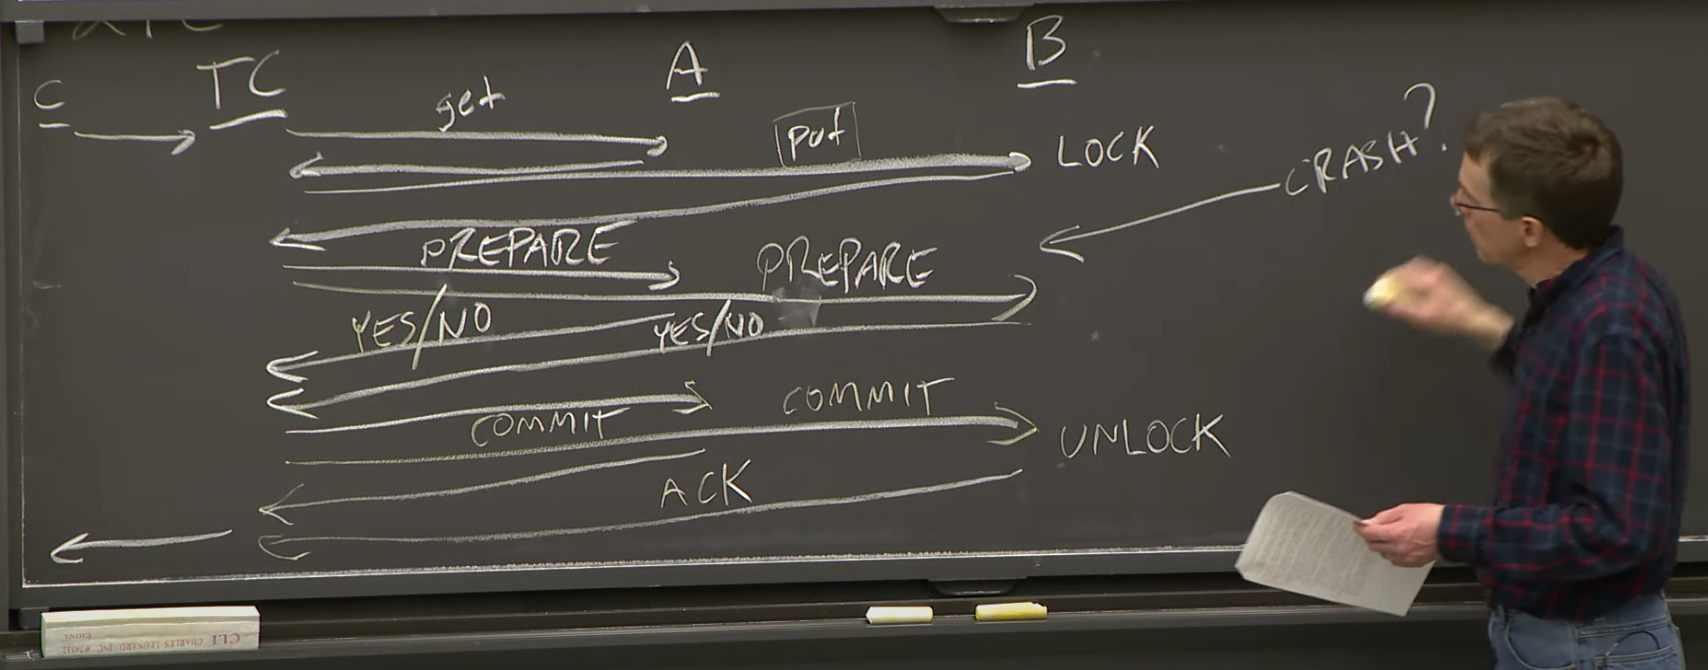 C
TC
A
B
get
put
LOCK
CRASH?
PREPARE
PREPARE
YES/NO
YES/NO
COMMIT
COMMIT
UNLOCK
ACK
CLI
CHARLES LEONARD INC #74512
CHINA